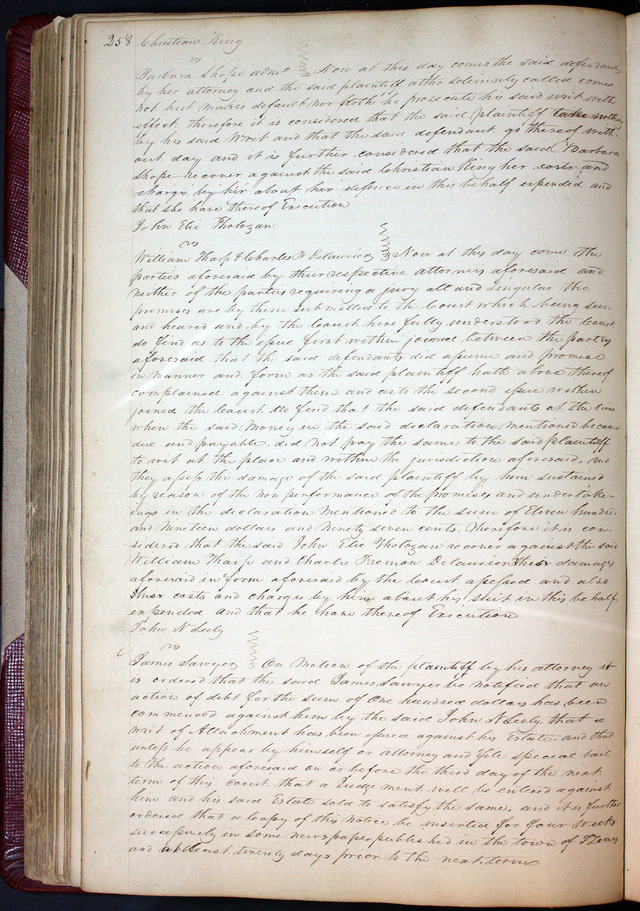 258 Christian King
vs
Barbara Shope admx Now at this day comes the said defendant
by her attorney and the said plaintiff altho solemnly called comes
not but makes default nor doth he prosecute his said writ with
effect therefore it is considered that the said plaintiff take nothing
by his said Writ and that the said defendant go thereof with-
out day and it is further considered that the said Barbara
Shope recover against the said Christian King her costs and
charges by her about her defence in this behalf expended and
that she have thereof Execution
John Elie Tholozan
vs
William Tharp & Charles F Delauriere Now at this day come the
parties aforesaid by their respective attornies aforesaid and
neither of the parties requiring a jury all and singular the
premises are by them submitted to the Court which being seen
and heard and by the Court here fully understood the Court
do find as to the issue first within joined between the parties
aforesaid that the said defendants did assume and promise
in manner and form as the said plaintiff hath above thereof
complained against them and as to the second issue within
joined the Court do find that the said defendants at the time
when the said money in the said declaration mentioned became
due and payable, did not pay the same to the said plaintiff
to wit at the place and within the jurisdiction aforesaid, and
they assess the damage of the said plaintiff by him sustained
by reason of the non performance of the promises and undertak-
ings in the declaration mentioned to the sum of Eleven hundred
and nineteen dollars and ninety seven cents. Therefore it is con-
sidered that the said John Elie Tholozan recover against the said
William Tharp and Charles Fremon Delauriere damages
aforesaid in form aforesaid by the Court assessed and also
costs and charges by him about his suit in this behalf
expended and that he have thereof Execution
John N Seely
vs
James Sawyer On motion of the plaintiff by his attorney it
is ordered that the said James Sawyer be notified that an
action of debt for the sum of one hundred dollars has been
commenced against him by the said John N Seely, that a
writ of Attachment has been issued against his Estate and that
unless he appear by himself or attorney and file special bail
to the action aforesaid on or before the third day of the next
term of this court that a Judgement will be entered against
him and his said Estate sold to satisfy the same, and it is further
ordered that a Copy of this notice be inserted for four weeks
successively in some newspaper published in the town of St Louis
and at least twenty days prior to the next term